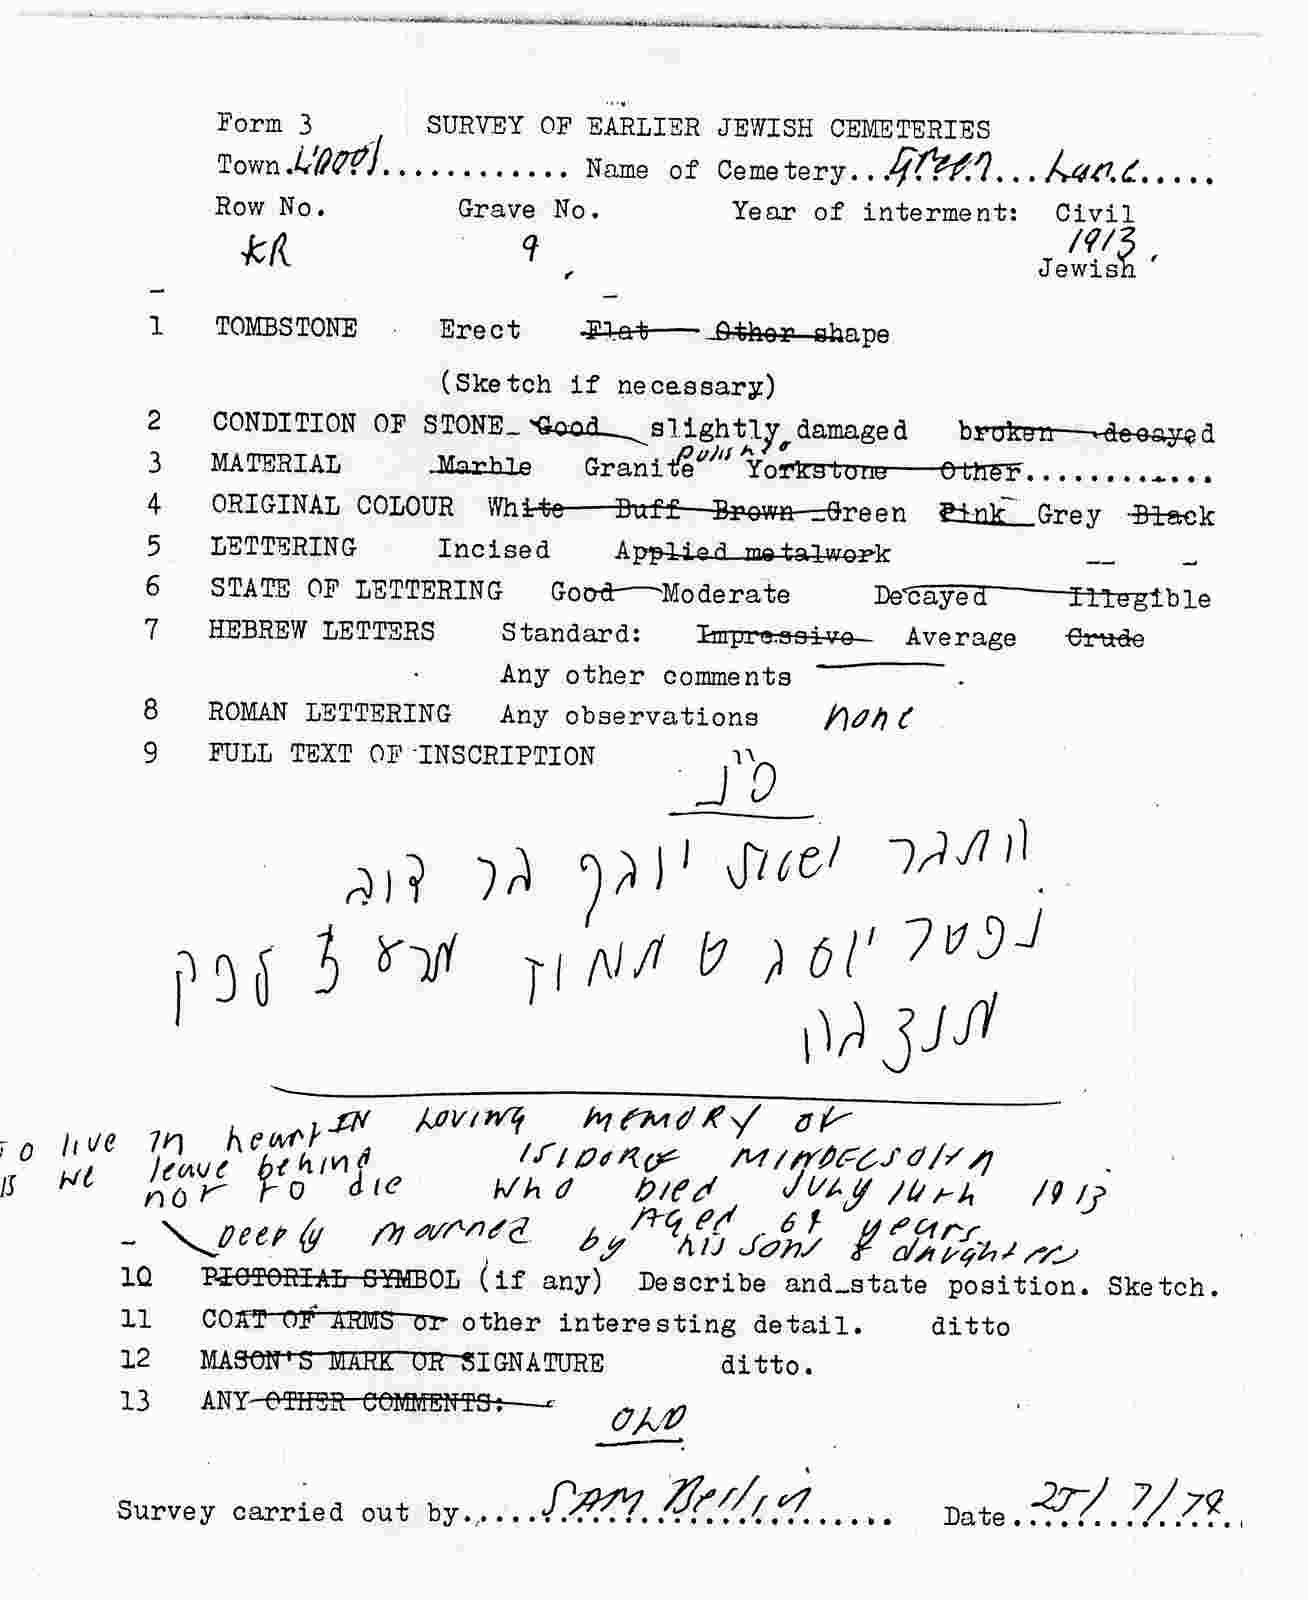 Form 3 SURVEY OF EARLIER JEWISH CEMETERIES
Town.L'pool............ Name of Cemetery...Green...Lane.....
Row No. Grave No. Year of interment: Civil
KR 9 1913
Jewish
1 TOMBSTONE Erect Flat Other shape
(Sketch if necessary)
2 CONDITION OF STONE Good slightly damaged broken decayed
3 MATERIAL Marble Granite polished Yorkstone Other............
4 ORIGINAL COLOUR White Buff Brown Green Pink Grey Black
5 LETTERING Incised Applied metalwork
6 STATE OF LETTERING Good Moderate Decayed Illegible
7 HEBREW LETTERS Standard: Impressive Average Crude
Any other comments
8 ROMAN LETTERING Any observations none
9 FULL TEXT OF INSCRIPTION
פ"נ
יוסף בר דוב
נפטר יום ג ט תמוז תרע ג לפק
תנצבה
IN LOVING MEMORY OF
ISIDORE MINDELSOHN
WHO DIED JULY 14TH 1913
Aged 64 years
Deeply mourned by his sons & daughters
To live in heart
we leave behind
is not to die
10 PICTORIAL SYMBOL (if any) Describe and state position. Sketch.
11 COAT OF ARMS or other interesting detail. ditto
12 MASON'S MARK OR SIGNATURE ditto.
13 ANY OTHER COMMENTS:
OLD
Survey carried out by.....SAM Berlin..... Date...25/7/78...